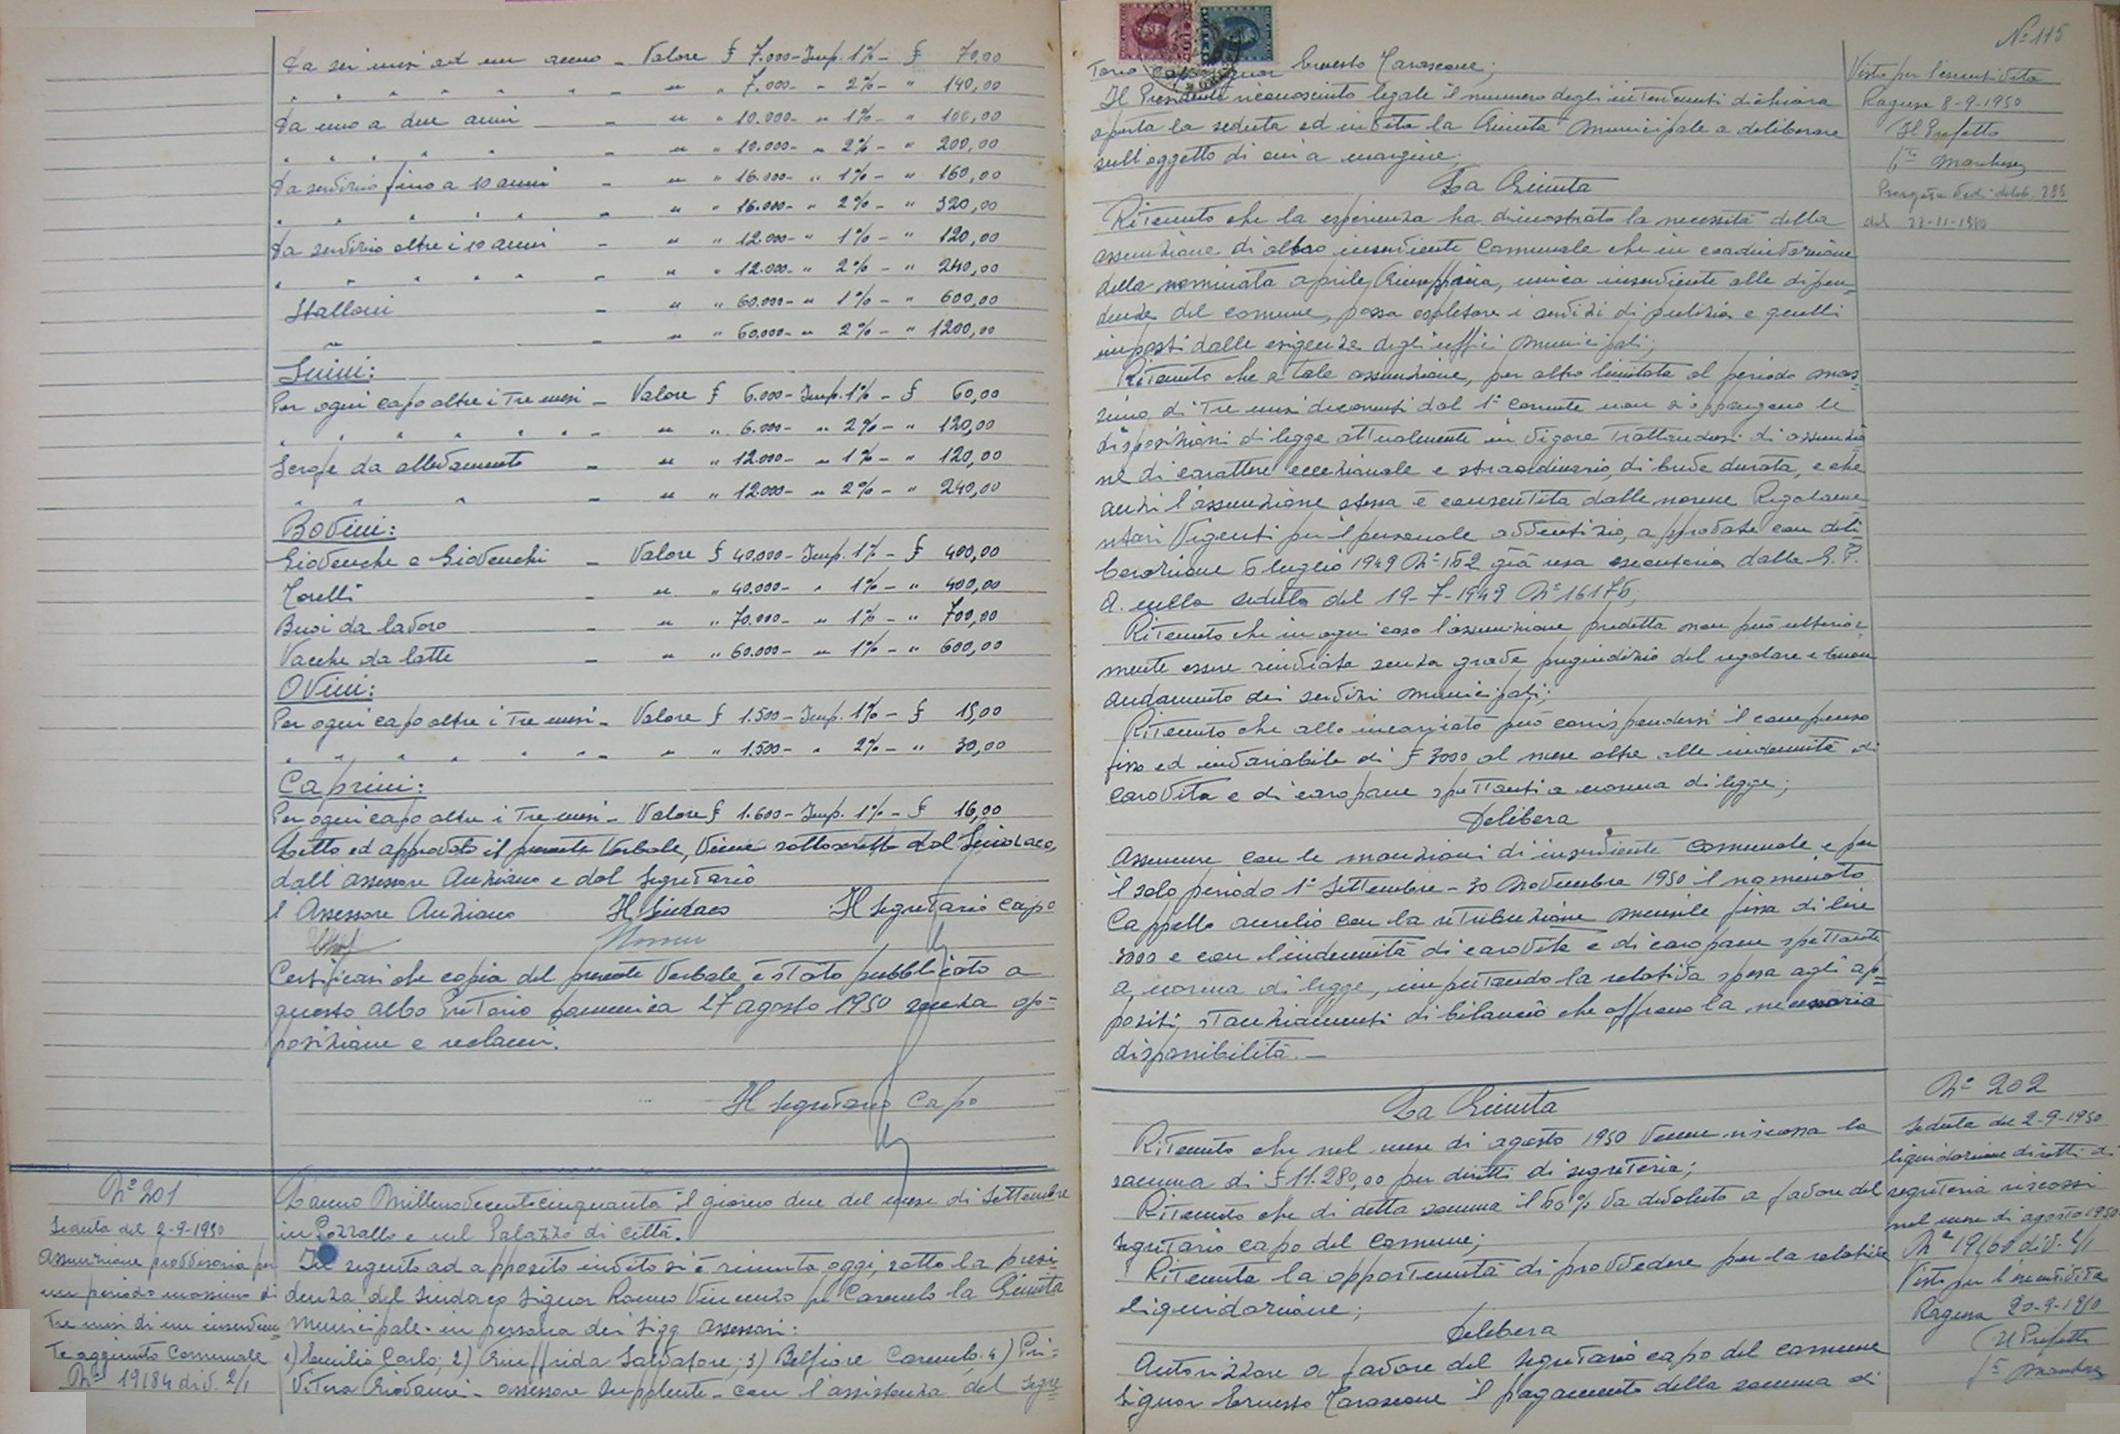 da sei mesi ad un anno - Valore £ 7.000 - Imp. 1% - £ 70,00
" " " " " " " - " " 7.000 - " 2% - " 140,00
da uno a due anni - " " 10.000 - " 1% - " 100,00
" " " " " - " " 10.000 - " 2% - " 200,00
da servizio fino a 10 anni - " " 16.000 - " 1% - " 160,00
" " " " " " - " " 16.000 - " 2% - " 320,00
da servizio oltre i 10 anni - " " 12.000 - " 1% - " 120,00
" " " " " " - " " 12.000 - " 2% - " 240,00
Stalloni - " " 60.000 - " 1% - " 600,00
" - " " 60.000 - " 2% - " 1200,00
Suini:
Per ogni capo oltre i tre mesi - Valore £ 6.000 - Imp. 1% - £ 60,00
" " " " " " " - " " 6.000 - " 2% - " 120,00
Scrofe da allevamento - " " 12.000 - " 1% - " 120,00
" " " - " " 12.000 - " 2% - " 240,00
Bovini:
Giovenche e Giovenchi - Valore £ 40.000 - Imp. 1% - £ 400,00
Torelli - " " 40.000 - " 1% - " 400,00
Buoi da lavoro - " " 70.000 - " 1% - " 700,00
Vacche da latte - " " 60.000 - " 1% - " 600,00
Ovini:
Per ogni capo oltre i tre mesi - Valore £ 1.500 - Imp. 1% - £ 15,00
" " " " " " " - " " 1.500 - " 2% - " 30,00
Caprini:
Per ogni capo oltre i tre mesi - Valore £ 1.600 - Imp. 1% - £ 16,00
Letto ed approvato il presente Verbale, viene sottoscritto dal Sindaco,
dall'assessore Anziano e dal Segretario
l'Assessore Anziano Il Sindaco Il Segretario Capo
Certificasi che copia del presente Verbale è stato pubblicato a
questo albo Pretorio domenica 27 agosto 1950 senza op=
posizione e reclami.
Il Segretario Capo
N° 201
Seduta del 2-9-1950
Assunzione provvisoria per
un periodo massimo di
tre mesi di un inservien
te aggiunto Comunale
N° 19184 div. 2/1
L'anno Millenovecentocinquanta il giorno due del mese di Settembre
in Pozzallo e nel Palazzo di città.
In seguito ad apposito invito si è riunita oggi, sotto la presi
denza del Sindaco Signor Romeo Vincenzo fu Carmelo la Giunta
Municipale in persona dei Sigg. assessori:
1) Emilio Carlo; 2) Giuffrida Salvatore; 3) Belfiore Carmelo; 4) Pri=
vitera Giovanni - assessore supplente - con l'assistenza del Segre=
N° 115
tario Capo Signor Ernesto Tarascone;
Il Presidente riconosciuto legale il numero degli intervenuti dichiara
aperta la seduta ed invita la Giunta Municipale a deliberare
sull'oggetto di cui a margine.
La Giunta
Ritenuto che la esperienza ha dimostrato la necessità della
assunzione di altro inserviente Comunale che in coadiuvazione
della nominata Aprile Giuseppina, unica inserviente alle dipen=
denze del comune, possa espletare i servizi di pulizia e quelli
imposti dalle esigenze degli uffici Municipali;
Ritenuto che a tale assunzione, per altro limitata al periodo mas=
simo di tre mesi decorrenti dal 1° corrente non si oppongono le
disposizioni di legge attualmente in vigore trattandosi di assunzio
ne di carattere eccezionale e straordinario, di breve durata, e che
anzi l'assunzione stessa è consentita dalle norme Regolame=
ntari Vigenti per il personale avventizio, approvate con deli
berazione 5 luglio 1949 N° 152 già resa esecutoria dalla G.P.
A. nella seduta del 19-7-1949 N° 16176;
Ritenuto che in ogni caso l'assunzione predetta non può ulterior=
mente essere rinviata senza grave pregiudizio del regolare e buon
andamento dei servizi Municipali;
Ritenuto che allo incaricato può corrispondersi il compenso
fisso ed invariabile di £ 3000 al mese oltre alle indennità di
carovita e di caropane spettanti a norma di legge;
Delibera
Assumere con le mansioni di inserviente Comunale e per
il solo periodo 1° Settembre - 30 Novembre 1950 il nominato
Cappello Aurelio con la retribuzione mensile fissa di lire
3000 e con l'indennità di carovita e di caropane spettante
a norma di legge, imputando la relativa spesa agli ap=
positi stanziamenti di bilancio che offrono la necessaria
disponibilità. -
Visto per l'esecutività
Ragusa 8-9-1950
Il Prefetto
del 22-11-1950
La Giunta
Ritenuto che nel mese di agosto 1950 venne riscossa la
somma di £ 11.280,00 per diritti di segreteria;
Ritenuto che di detta somma il 50% va devoluto a favore del
Segretario capo del Comune;
Ritenuta la opportunità di provvedere per la relativa
liquidazione;
Delibera
Autorizzare a favore del Segretario capo del comune
Signor Ernesto Tarascone il pagamento della somma di
N° 202
Seduta del 2-9-1950
liquidazione diritti di
segreteria riscossi
nel mese di agosto 1950
N° 19160 div. 2/1
Visto per l'esecutività
Ragusa 20-9-1950
Il Prefetto